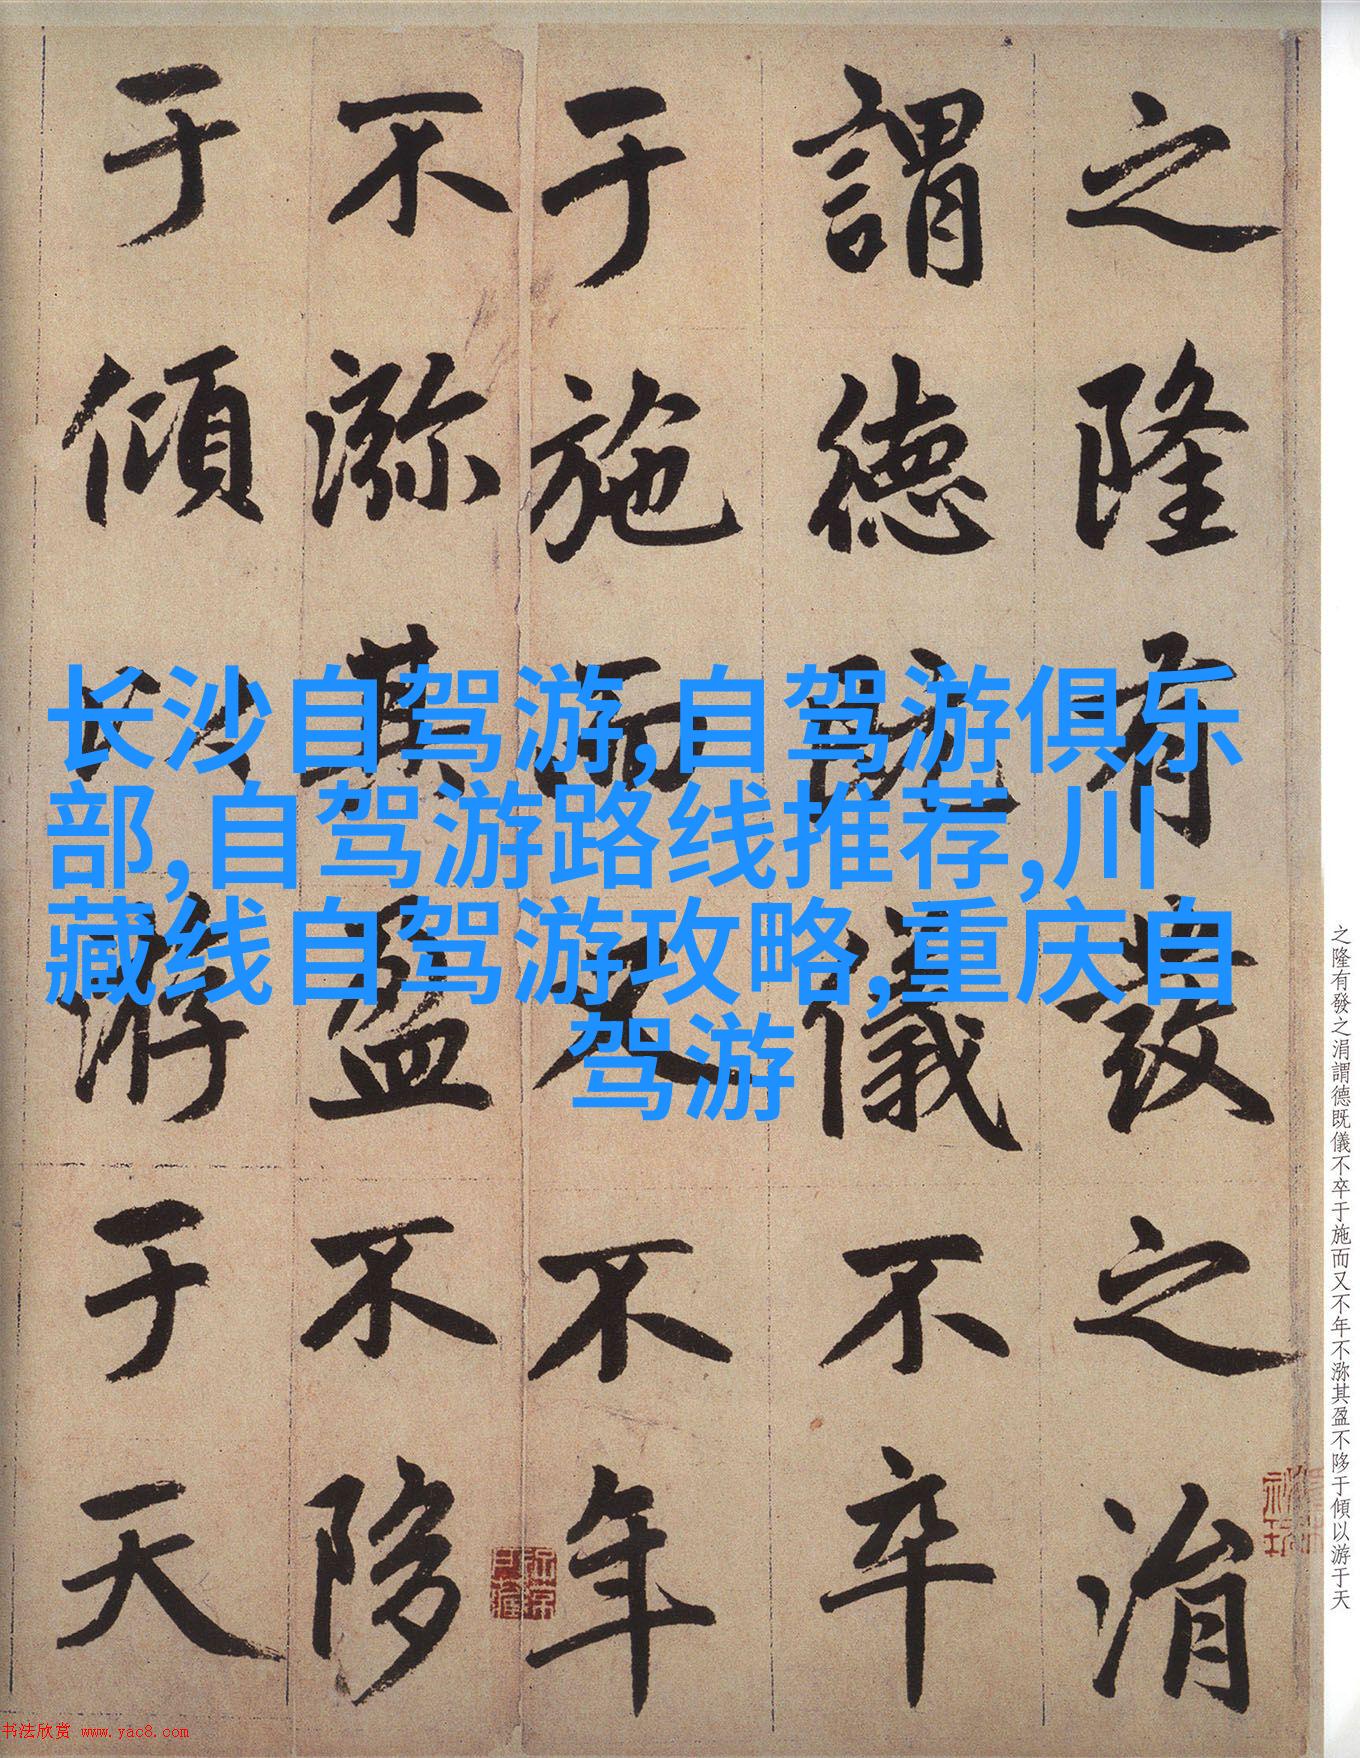 之隆有發之涓
謂德既儀不卒
于施而又不年
不㳽其盈不陊
于傾以游于天
长沙自驾游,自驾游俱乐
部,自驾游路线推荐,川
藏线自驾游攻略,重庆自
驾游
之隆有發之涓謂德既儀不卒于施而又不年不㳽其盈不陊于傾以游于天
书法欣赏 www.yac8.com